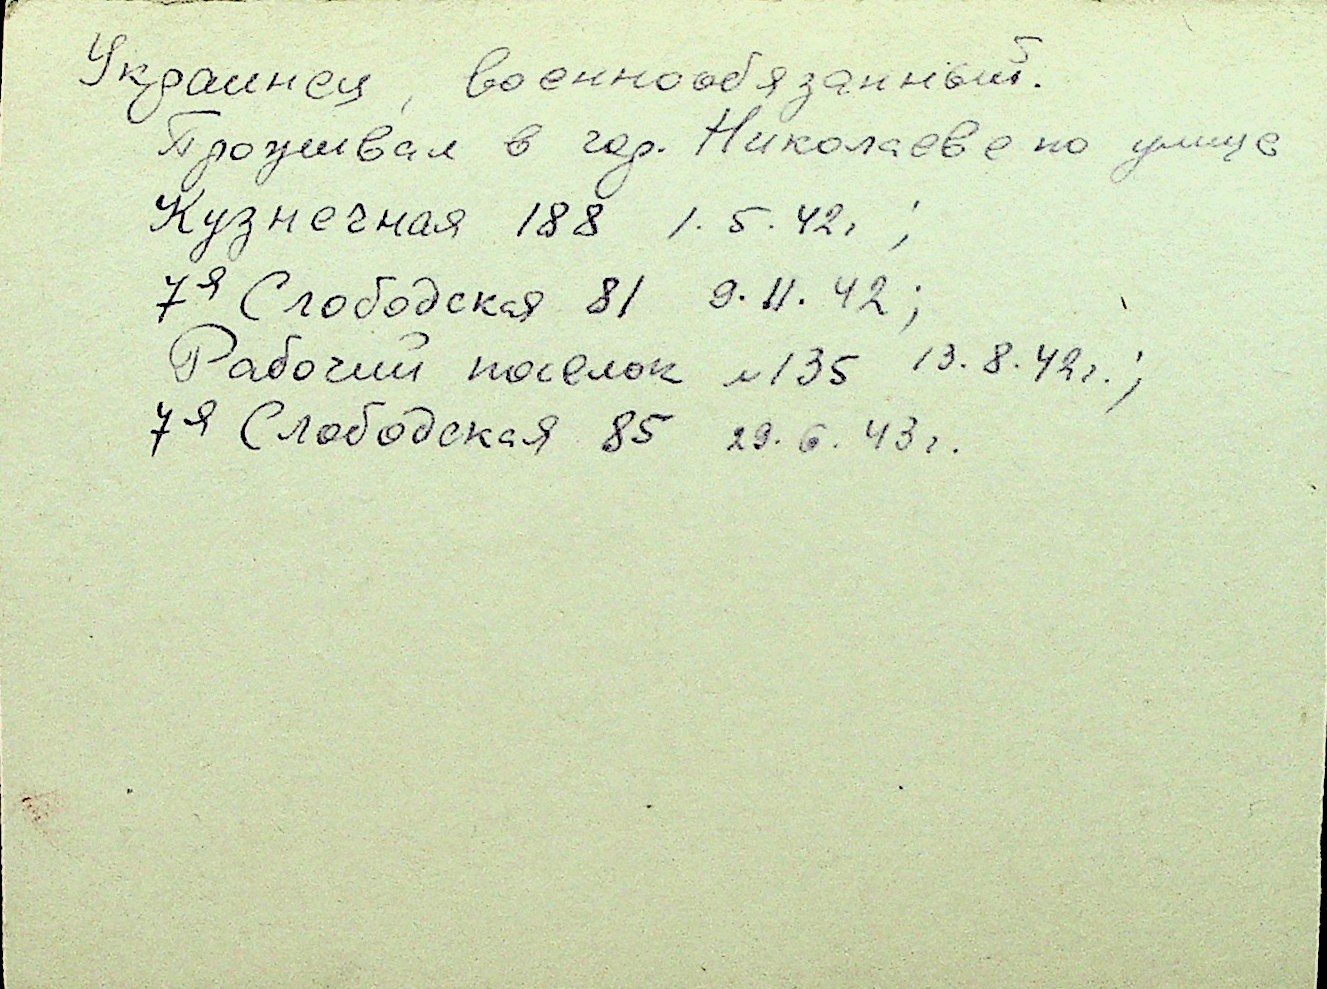 Украинец, военнообязанный.
Проживал в гор. Николаеве по улице
Кузнечная 188 1.5.42г;
7я Слободская 81 9.11.42;
Рабочий поселок №135 13.8.42г.;
7я Слободская 85 29.6.43г.